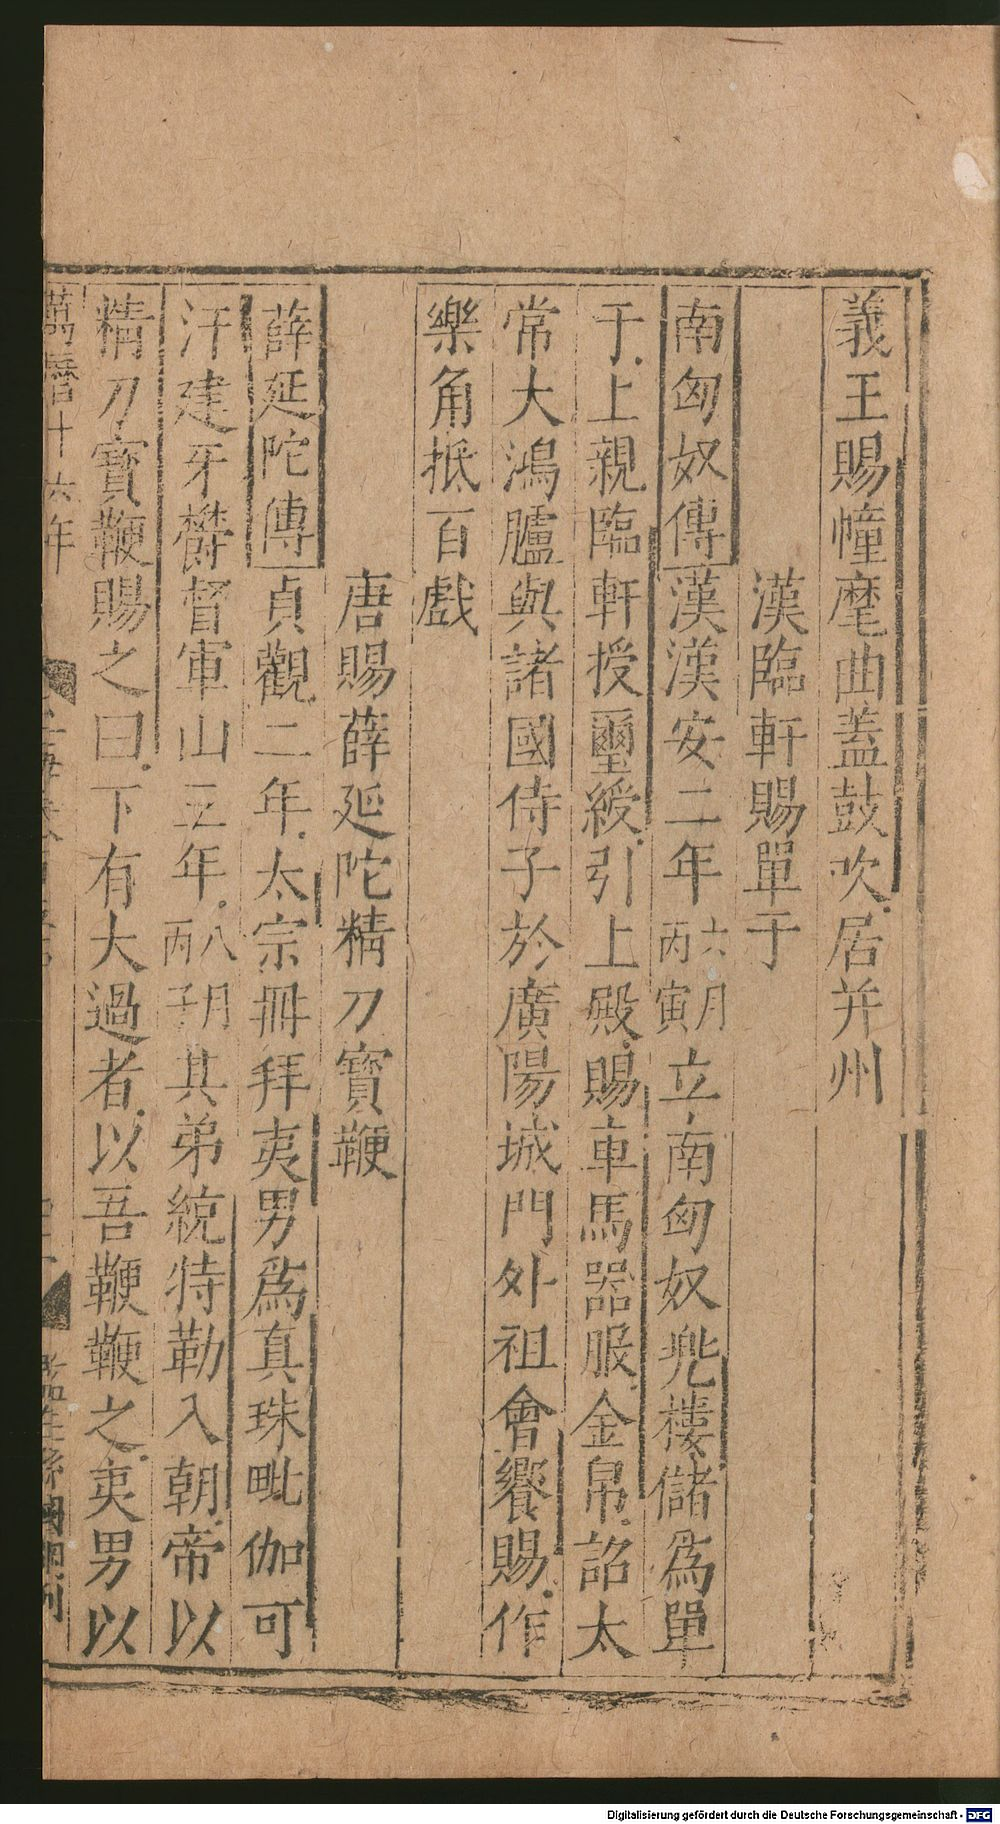 義王賜幢麾曲蓋鼓吹居并州
漢臨軒賜單于
南匈奴傳漢漢安二年六月丙寅立南匈奴兠樓儲爲單
于上親臨軒授璽綬引上殿賜車馬器服金帛詔太
常大鴻臚與諸國侍子於廣陽城門外祖會饗賜作
樂角抵百戲
唐賜薛延陀精刀寶鞭
薛延陀傳貞觀二年太宗冊拜夷男爲真珠毗伽可
汗建牙欝督軍山三年八月丙子其弟統特勒入朝帝以
精刀寶鞭賜之曰下有大過者以吾鞭鞭之夷男以
萬曆十六年
監生
Digitalisierung gefördert durch die Deutsche Forschungsgemeinschaft - DFG